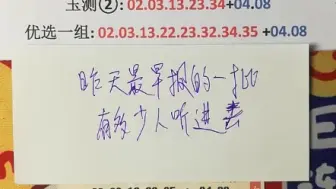 玉测②: 02.03.13.23.34+04.08
优选一组: 02.03.13.22.23.32.34.35 +04.08
昨天最早报的一批
有多少人听进去